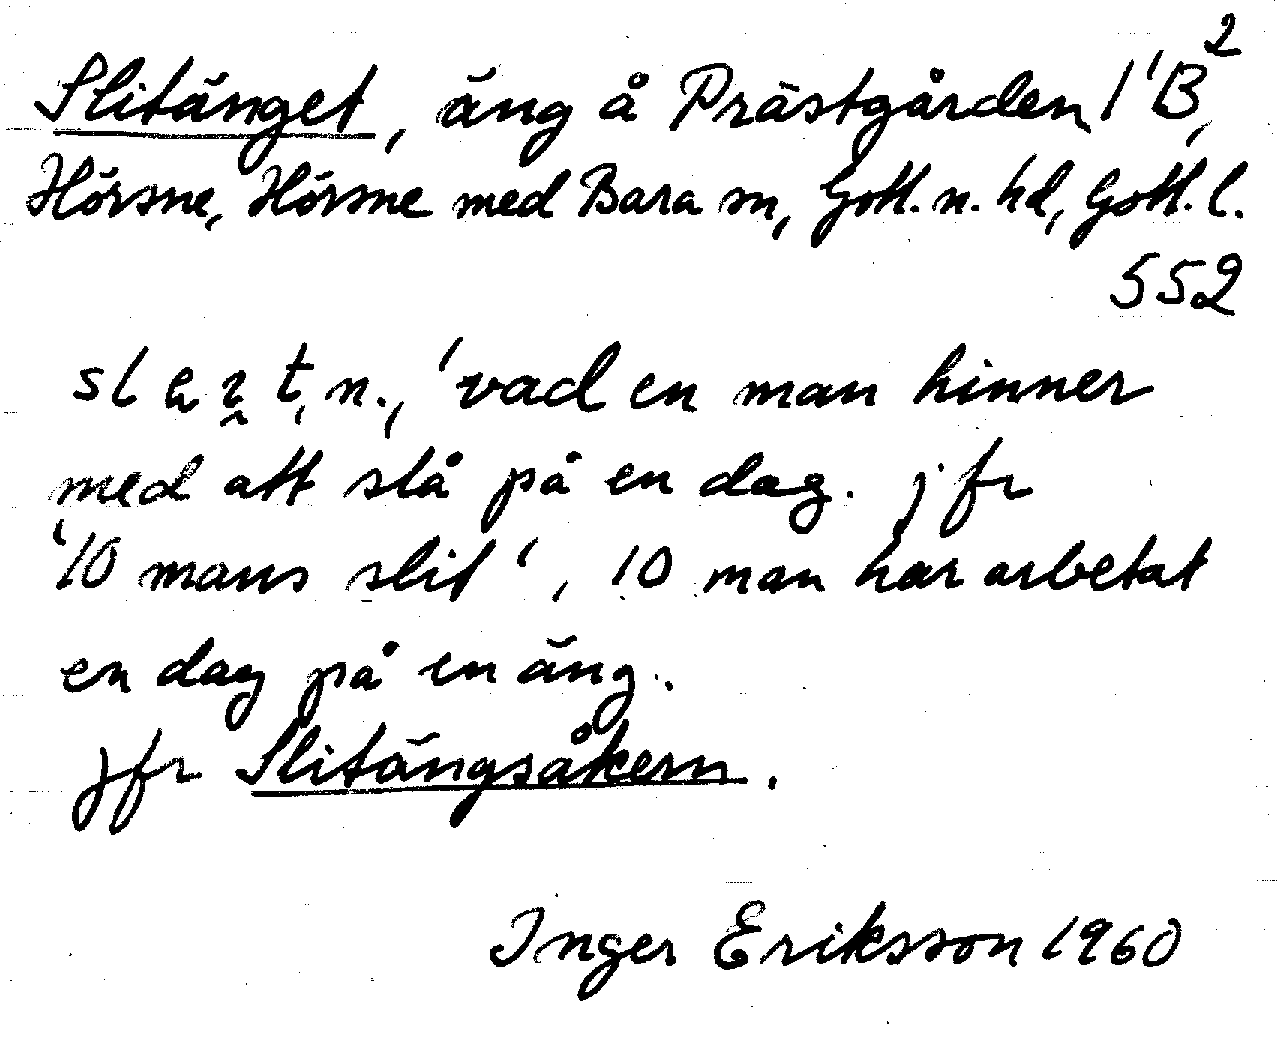 Slitänget, äng å Prästgården 1 'B²,
Hörsne, Hörsne med Bara sn, Gotl. n. hd, Gotl. l.
552
n., 'vad en man hinner
med att slå på en dag. jfr
'10 mans slit', 10 man har arbetat
en dag på en äng.
jfr Slitängsåkern.
Inger Eriksson 1960